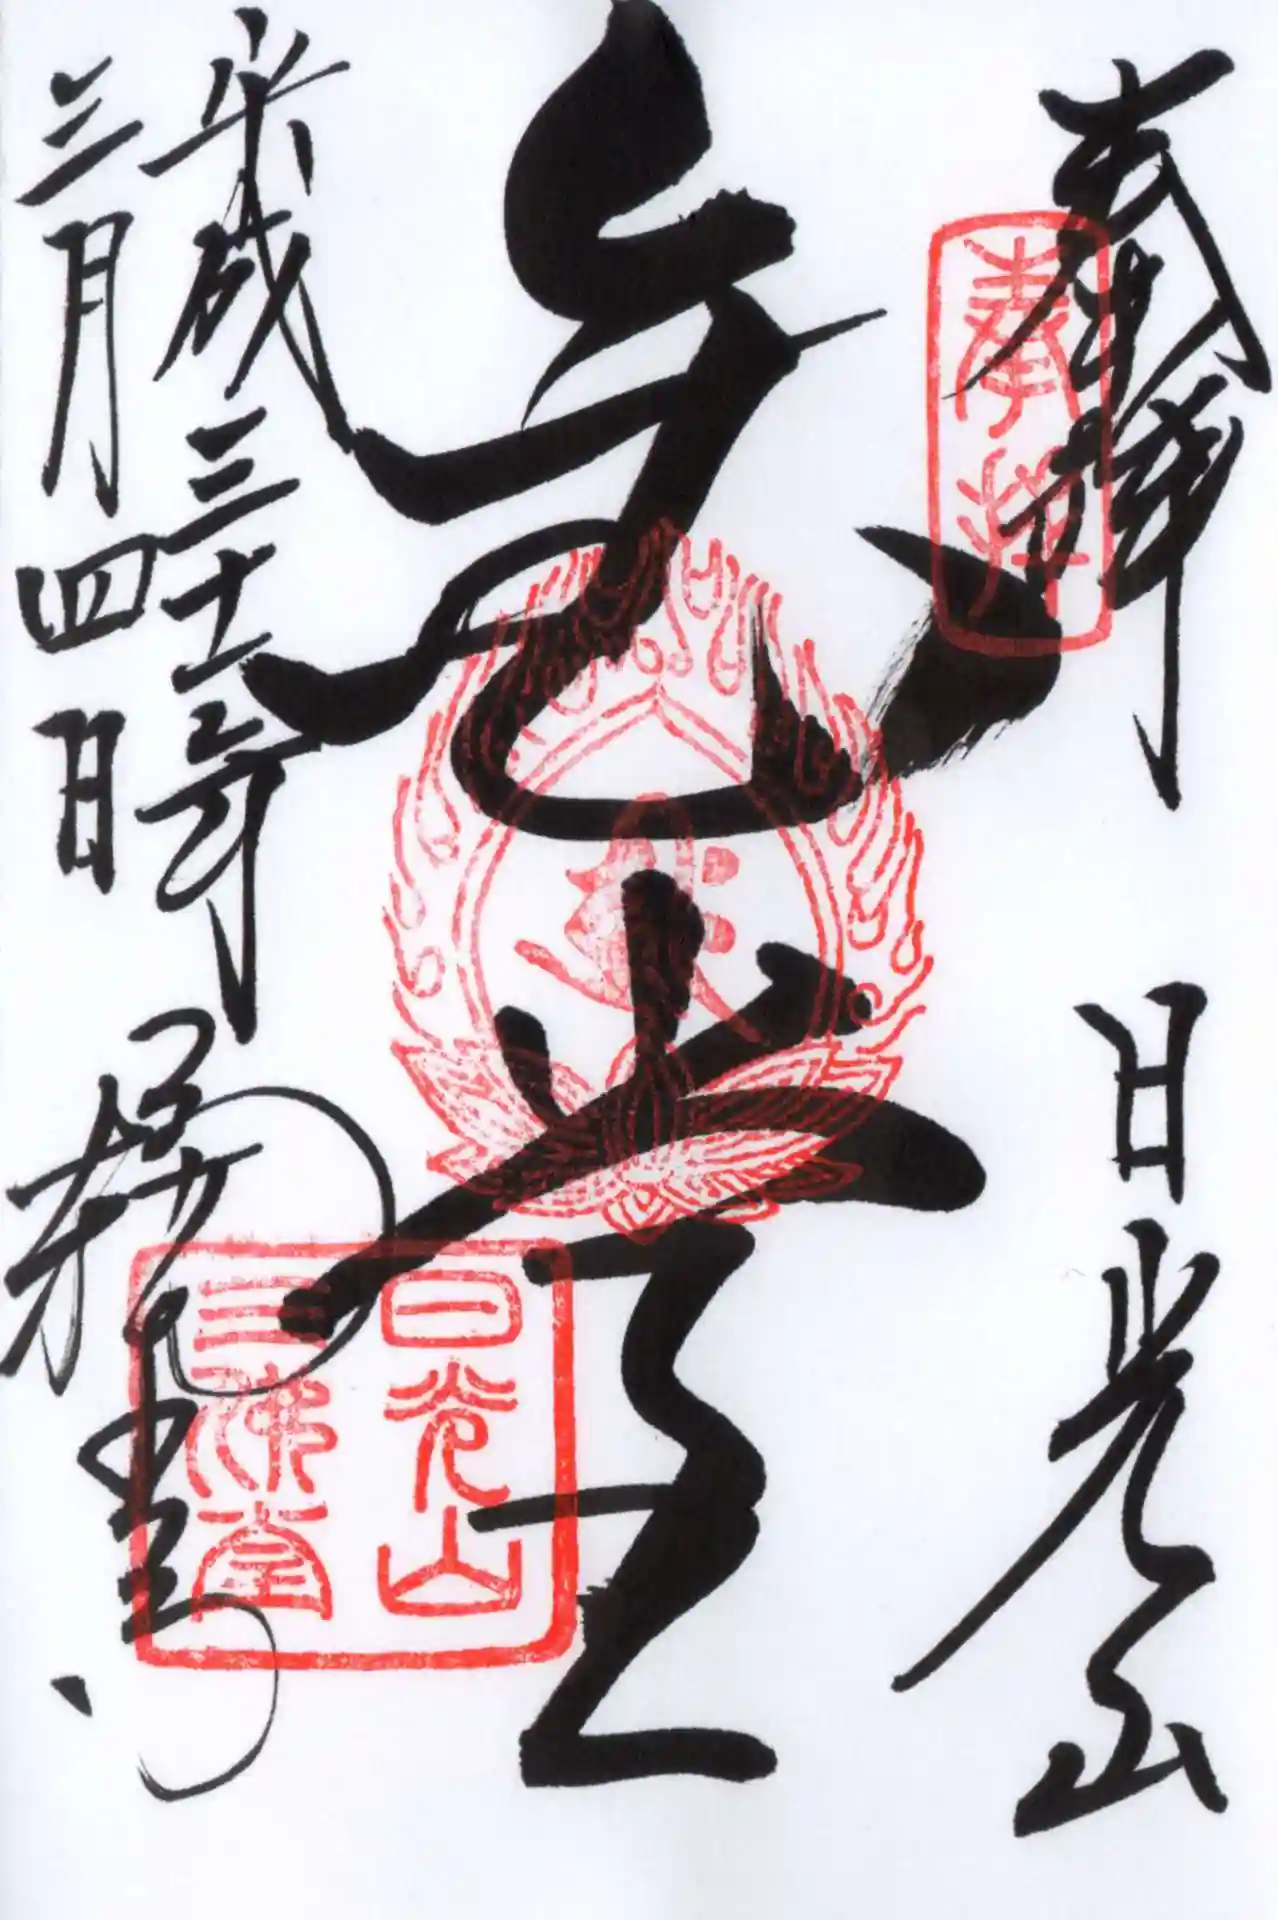 奉拝
日光山
奉拝
堂
日光山
三佛堂
平成三十一年
三月四日